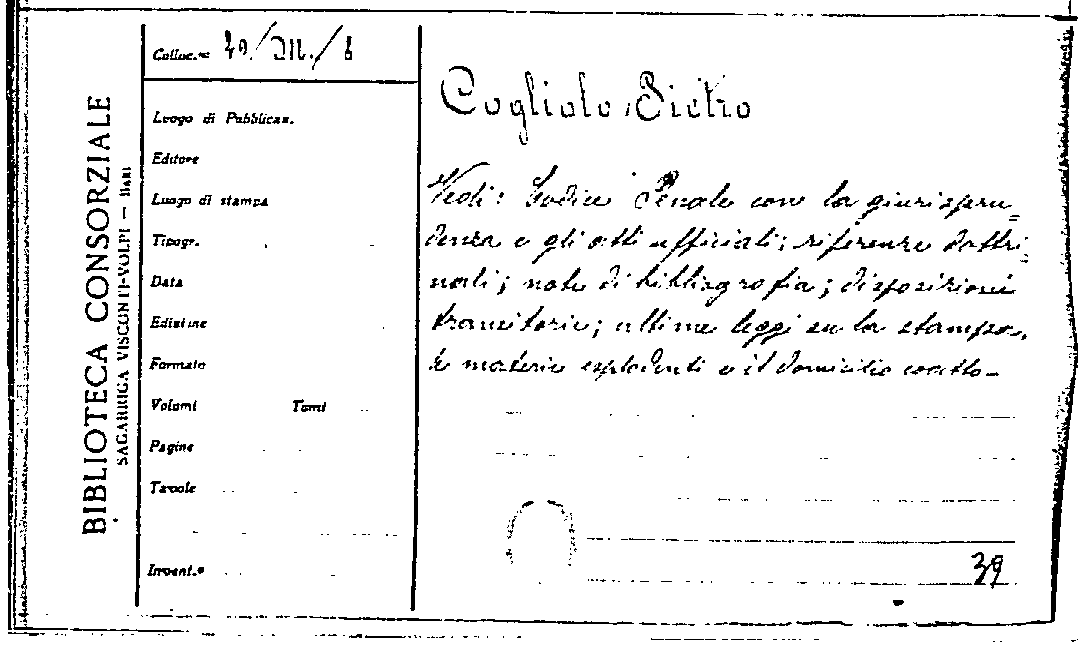 BIBLIOTECA CONSORZIALE
SAGARRIGA VISCONTI-VOLPI — BARI
Colloc.ne
Luogo di Pubblicaz.
Editore
Luogo di stampa
Tipogr.
Data
Edizione
Formato
Volumi Tomi
Pagine
Tavole
Invent.º
Cogliolo, Pietro
Vedi: Codice Penale con la giurispru=
denza e gli atti ufficiali; riferenze dottri
nali; note di bibliografia; disposizioni
transitorie; ultime leggi su la stampa,
le materie esplodenti e il domicilio coatto-
39